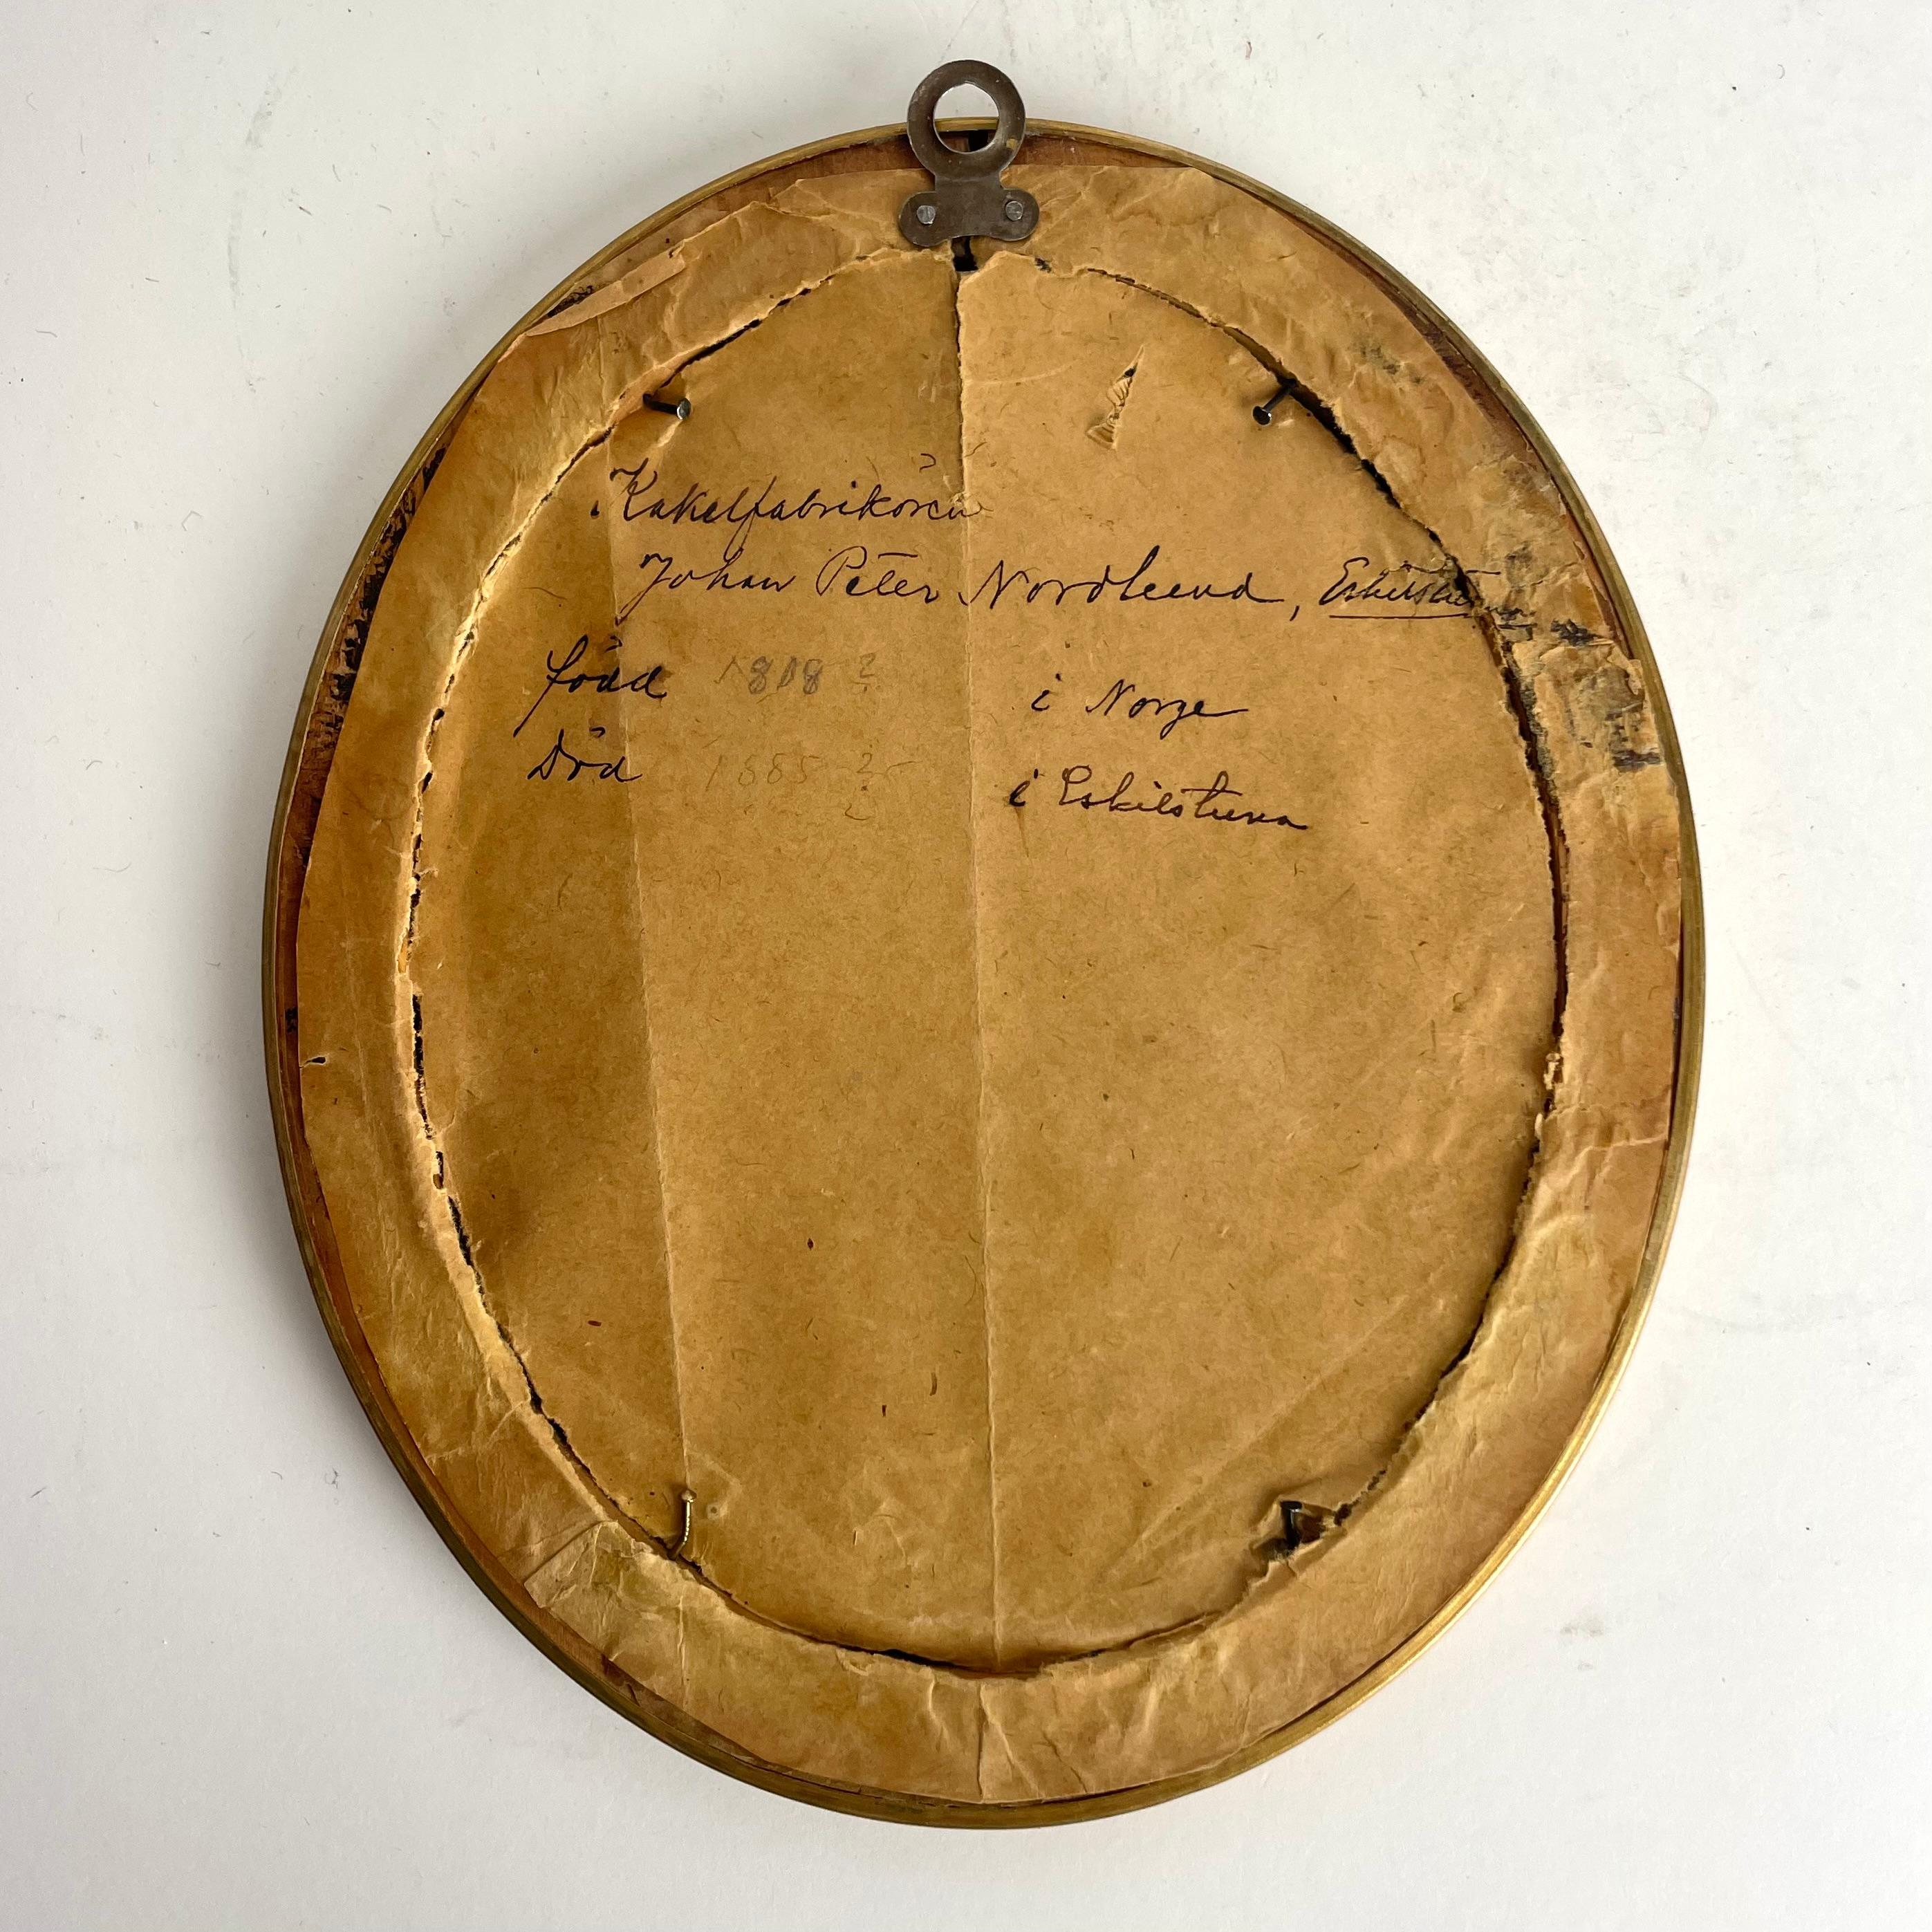 Kakelfabrikören
Johan Peter Nordlund, Eskilstuna
född 1818 ? i Norge
Död 1885 ? i Eskilstuna